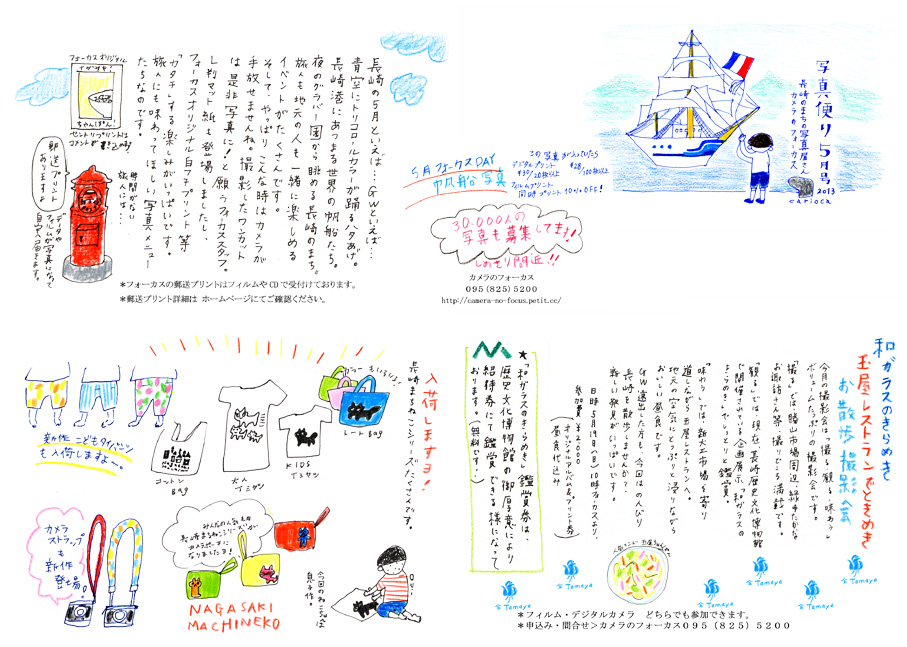 写真便り5月号
長崎のまちの写真屋さん
カメラのフォーカス
2013
carioca
長崎の5月といえば…GWといえば…
青空にトリコロールカラーが踊るハタあげ。
長崎港にあつまる世界の帆船たち。
夜のグラバー園から眺める長崎のまち。
旅人も地元の人も一緒に楽しめる
イベントがたくさんです。
そして、やっぱりこんな時はカメラが
手放せませんね。撮影したワンカット
は是非写真に!と願うフォーカススタッフ。
L判マット紙も登場しましたし、
フォーカスオリジナル白フチプリント等
「カタチ」する楽しみがいっぱいです。
旅人にも味わってほしい写真メニュー
たちなのです。
フォーカスオリジナル
ながさき
ちゃんぽん!
コメントが書き込めます
郵送プリント
ありますよ
時間がない
旅人には…
データや
フィルムが写真になって
自宅へ届きます。
*フォーカスの郵送プリントはフィルムやCDで受付けております。
*郵送プリント詳細は ホームページにてご確認ください。
5月フォーカスDAY
帆船写真
この写真が入っていたら
デジタルプリント
¥30/20枚以上
¥28/100枚以上
フィルムプリント
同時プリント10%OFF!
30,000人の
写真も募集してます!
しめきり間近!!
カメラのフォーカス
095(825)5200
http://camera-no-focus.petit.cc/
入荷しますヨ!
長崎まちねこシリーズ、たくさんです。
カラーもいろいろ!
トートBag
KIDS
Tシャツ
大人
Tシャツ
コットン
Bag
新作こどもタイパンツ
も入荷しますよ〜。
カメラ
ストラップ
も新作
登場。
みんなの人気もの
長崎まちねこシリーズが
カメラポーチに
なりましたヨ!
NAGASAKI
MACHINEKO
今回のねこは
息子作。
和ガラスのきらめき
玉屋レストランでときめき
お散歩撮影会
今月の撮影会は「撮る、観る、味わう」
ボリュームたっぷりの撮影会です。
「撮る」では勝山市場周辺、緑ゆたかな
お諏訪さん等、撮りどころ満載です。
「観る」では、現在、長崎歴史文化博物館
で開催されている企画展示「和ガラスの
きらめき」でしっとりと鑑賞。
「味わう」では、新大工市場を寄り
道しながら玉屋レストランへ。
地元の空気にどっぷりと浸りながら
おいしい昼食です。
GW遠出した方も、今回はのんびり
長崎を散歩しませんか?
新しい発見がいっぱいです。
日時5月19日(日)10時フォーカスより
参加費 ¥2000
(オリジナルアルバム&プリント券
昼食代込み)
★「和ガラスのきらめき」鑑賞券は、
歴史文化博物館の御厚意により
招待券にて鑑賞できる様になって
おります。(無料です。)
Tamaya
Tamaya
Tamaya
Tamaya
Tamaya
Tamaya
*フィルム・デジタルカメラ どちらでも参加できます。
*申込み・問合せ>カメラのフォーカス095(825)5200